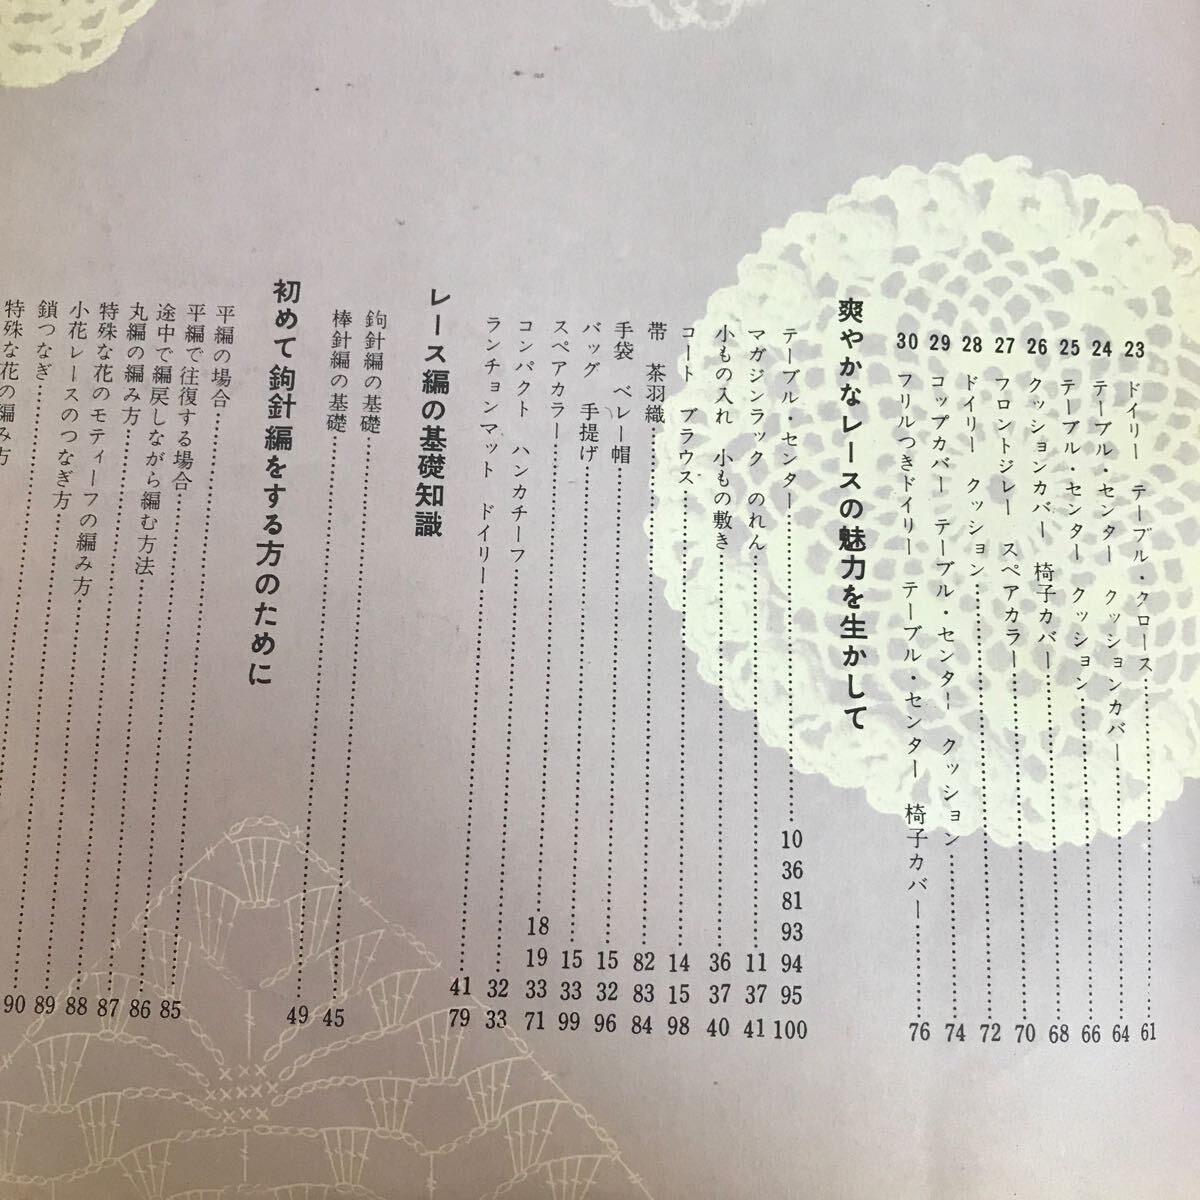 23 ドイリー テーブル・クロース……61
24 テーブル・センター クッションカバー……64
25 テーブル・センター クッション……66
26 クッションカバー 椅子カバー……68
27 フロントジレー スペアカラー……70
28 ドイリー クッション……72
29 コップカバー テーブル・センター クッション……74
30 フリルつきドイリー テーブル・センター 椅子カバー……76
爽やかなレースの魅力を生かして
テーブル・センター……10 36 81 93 94 95 100
マガジンラック のれん……11 37 41
小もの入れ 小もの敷き……36 37 40
コート ブラウス……14 15 98
帯 茶羽織……82 83 84
手袋 ベレー帽……15 32 96
バッグ 手提げ……15 33 99
スペアカラー……18 19 33 71
コンパクト ハンカチーフ……32 33
ランチョンマット ドイリー……41 79
レース編の基礎知識
鉤針編の基礎……45
棒針編の基礎……49
初めて鉤針編をする方のために
平編の場合……85
平編で往復する場合……86
途中で編戻しながら編む方法……87
丸編の編み方……88
特殊な花のモティーフの編み方……89
小花レースのつなぎ方……90
鎖つなぎ……
特殊な花の編み方……